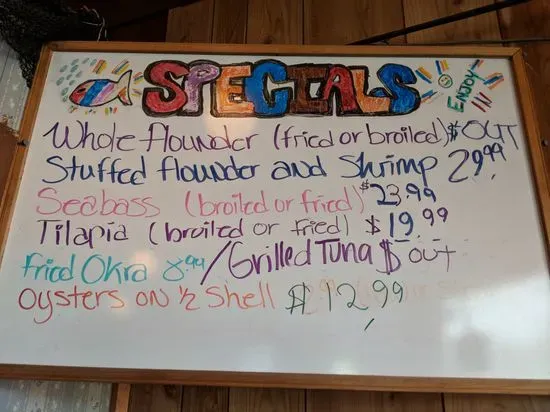 SPECIALS
ENJOY
Whole flounder (fried or broiled) $OUT
Stuffed flounder and Shrimp 29.99
Seabass (broiled or fried) $23.99
Tilapia (broiled or fried) $19.99
fried Okra 8.99/Grilled Tuna $ out
oysters on 1/2 Shell $12.99